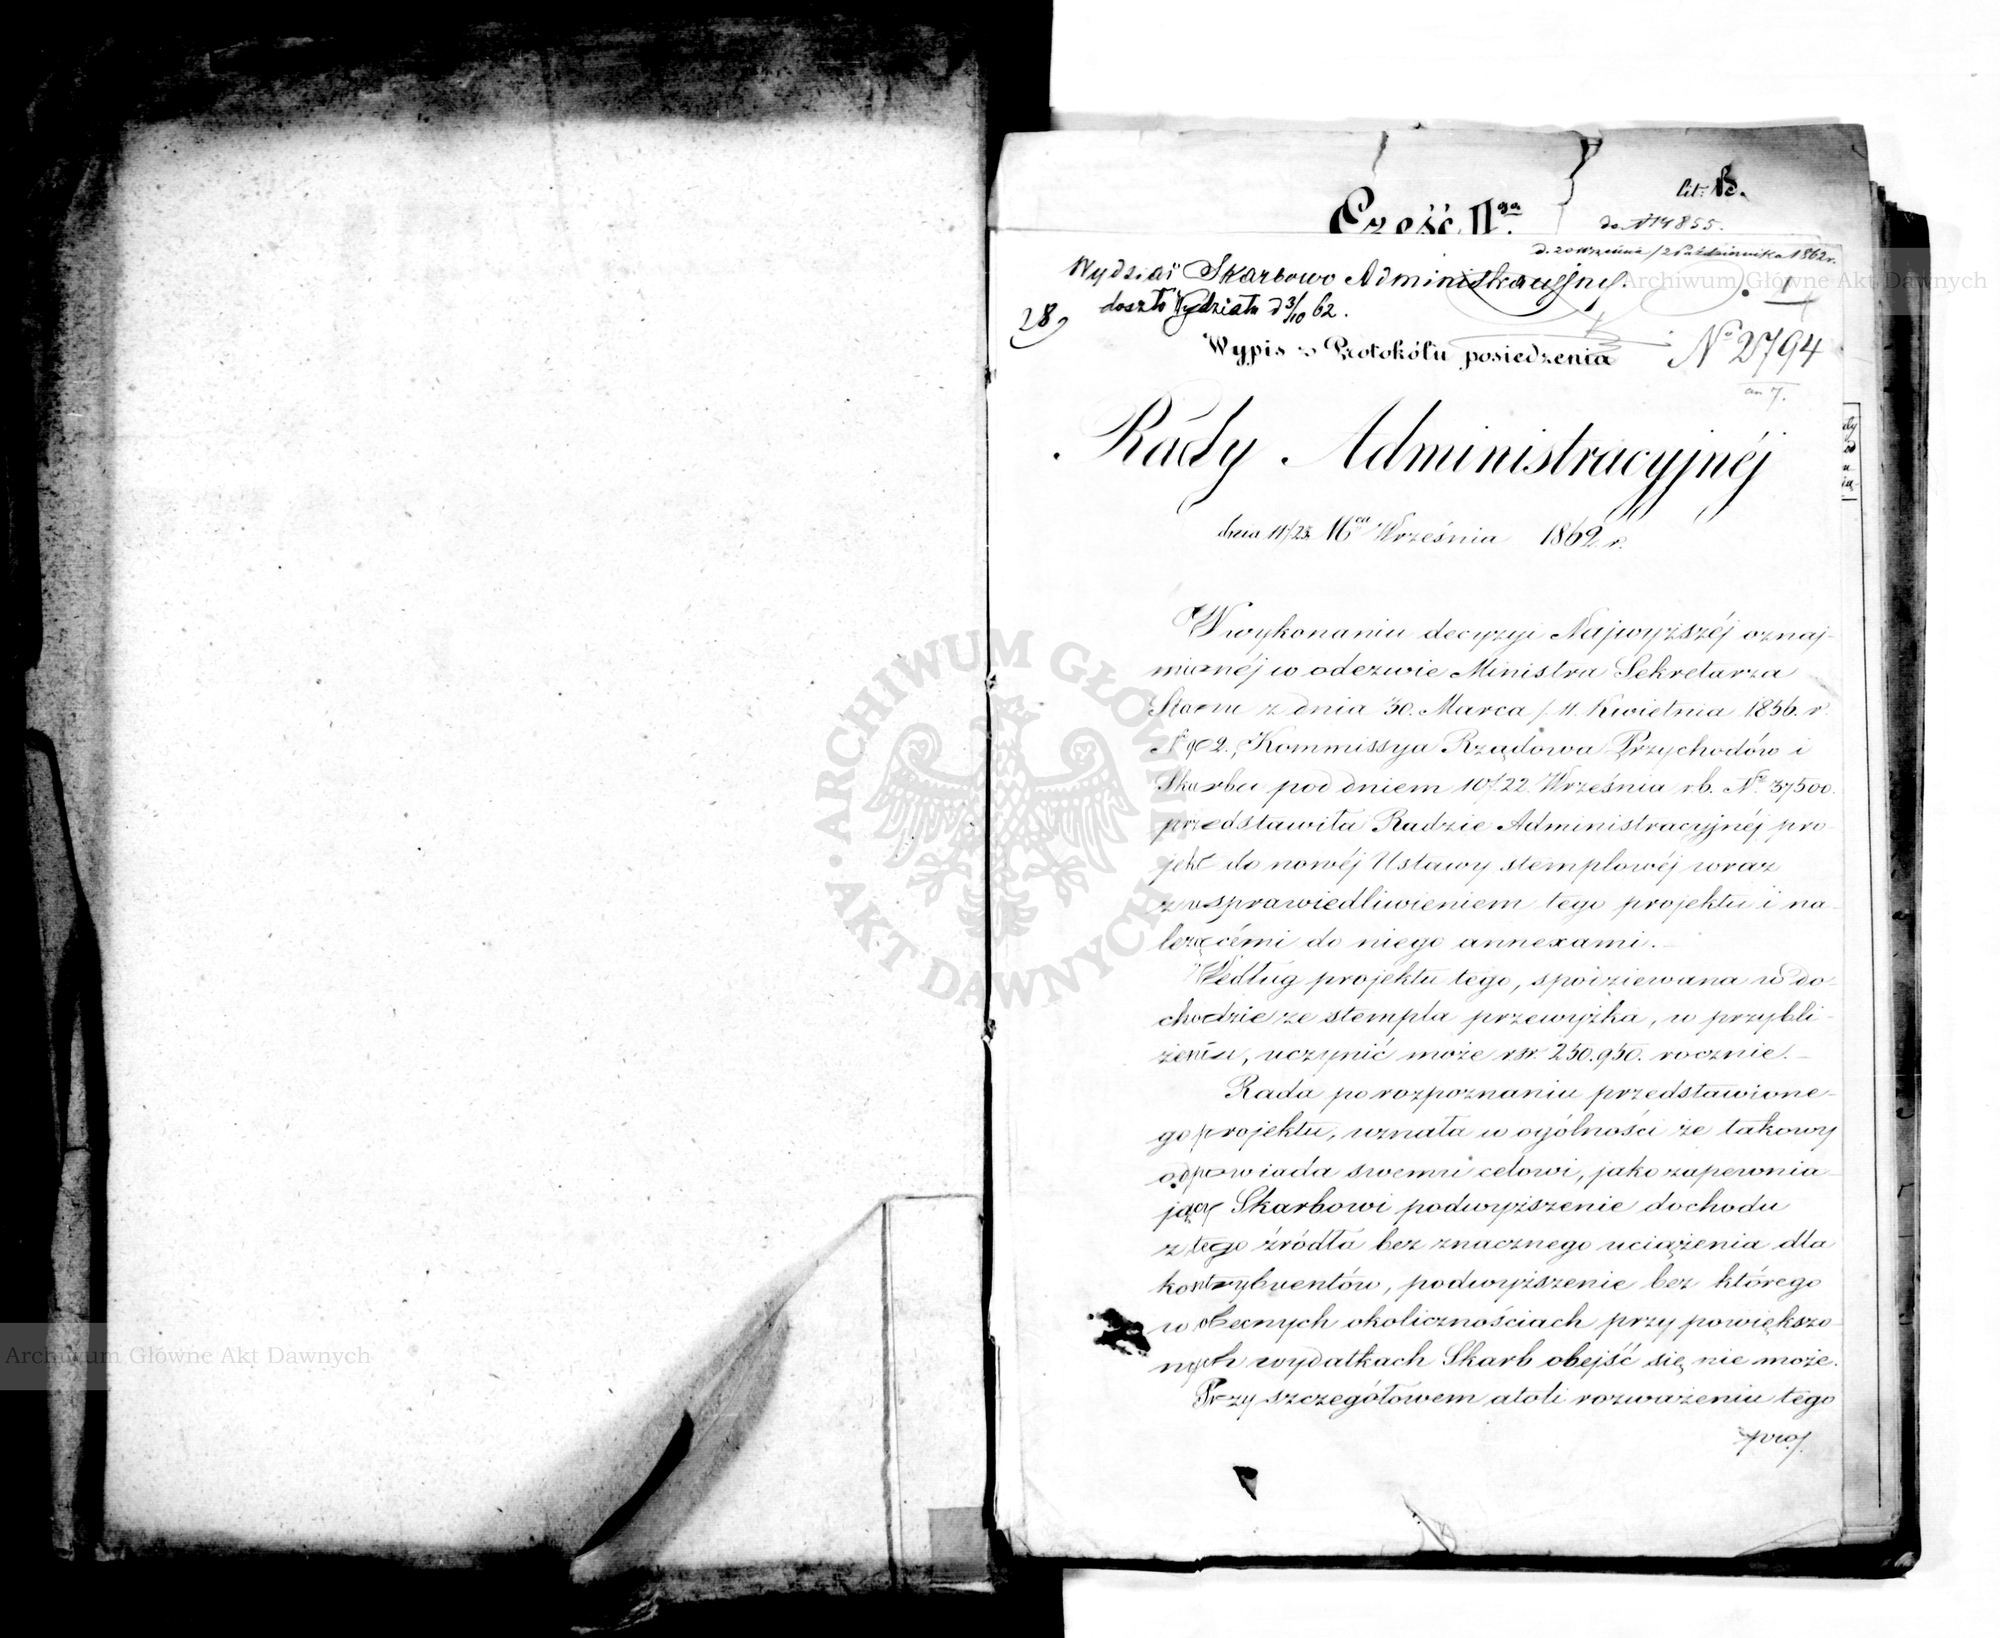 lit: B.
Część IIga
do N 14855.
d. 20 Września / 2 Października 1862 r.
Wydział Skarbowo Administracyjny.
1
doszło Wydziału d 3/10 62.
289
Wypis z Protokółu posiedzenia
No 2794
Rady Administracyjnéj
dnia 11/23 Mca Września 1862 r.
W wykonaniu decyzyi Najwyższéj oznaj-
mionéj w odezwie Ministra Sekretarza
Stanu z dnia 30. Marca / 11. Kwietnia 1856. r.
No 902., Kommissya Rządowa Przychodów i
Skarbu pod dniem 10/22 Września rb. No 37500.
przedstawiła Radzie Administracyjnéj pro-
jekt do nowéj Ustawy stemplowéj wraz
z usprawiedliwieniem tego projektu i na-
leżącémi do niego annexami.—
Według projektu tego, spodziewana w do-
chodzie ze stempla przewyżka, w przybli-
żeniu, uczynić może rsr. 250.950. rocznie.—
Rada po rozpoznaniu przedstawione-
go projektu, uznała w ogólności że takowy
odpowiada swemu celowi, jako zapewnia-
jący Skarbowi podwyższenie dochodu
z tego źródła bez znacznego uciążenia dla
kontrybuentów, podwyższenie bez którego
w obecnych okolicznościach przy powiększo-
nych wydatkach Skarb obejść się nie może.
Przy szczegółowem atoli rozważeniu tego
proj.
Archiwum Główne Akt Dawnych
ARCHIWUM GŁÓWNE AKT DAWNYCH
Archiwum Główne Akt Dawnych